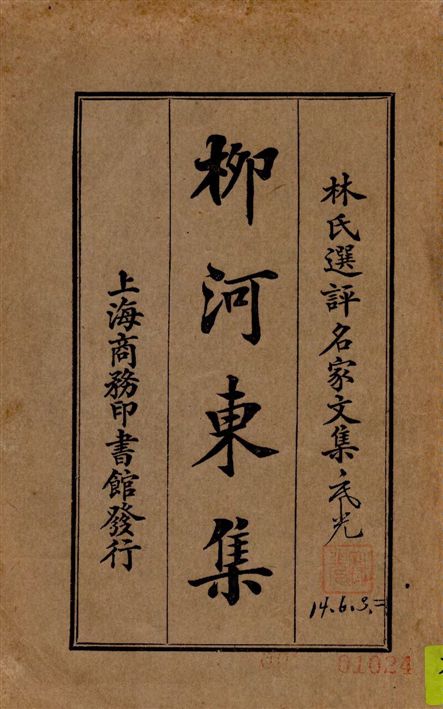 林氏選評名家文集
柳河東集
上海商務印書館發行
14.6.3.
01024